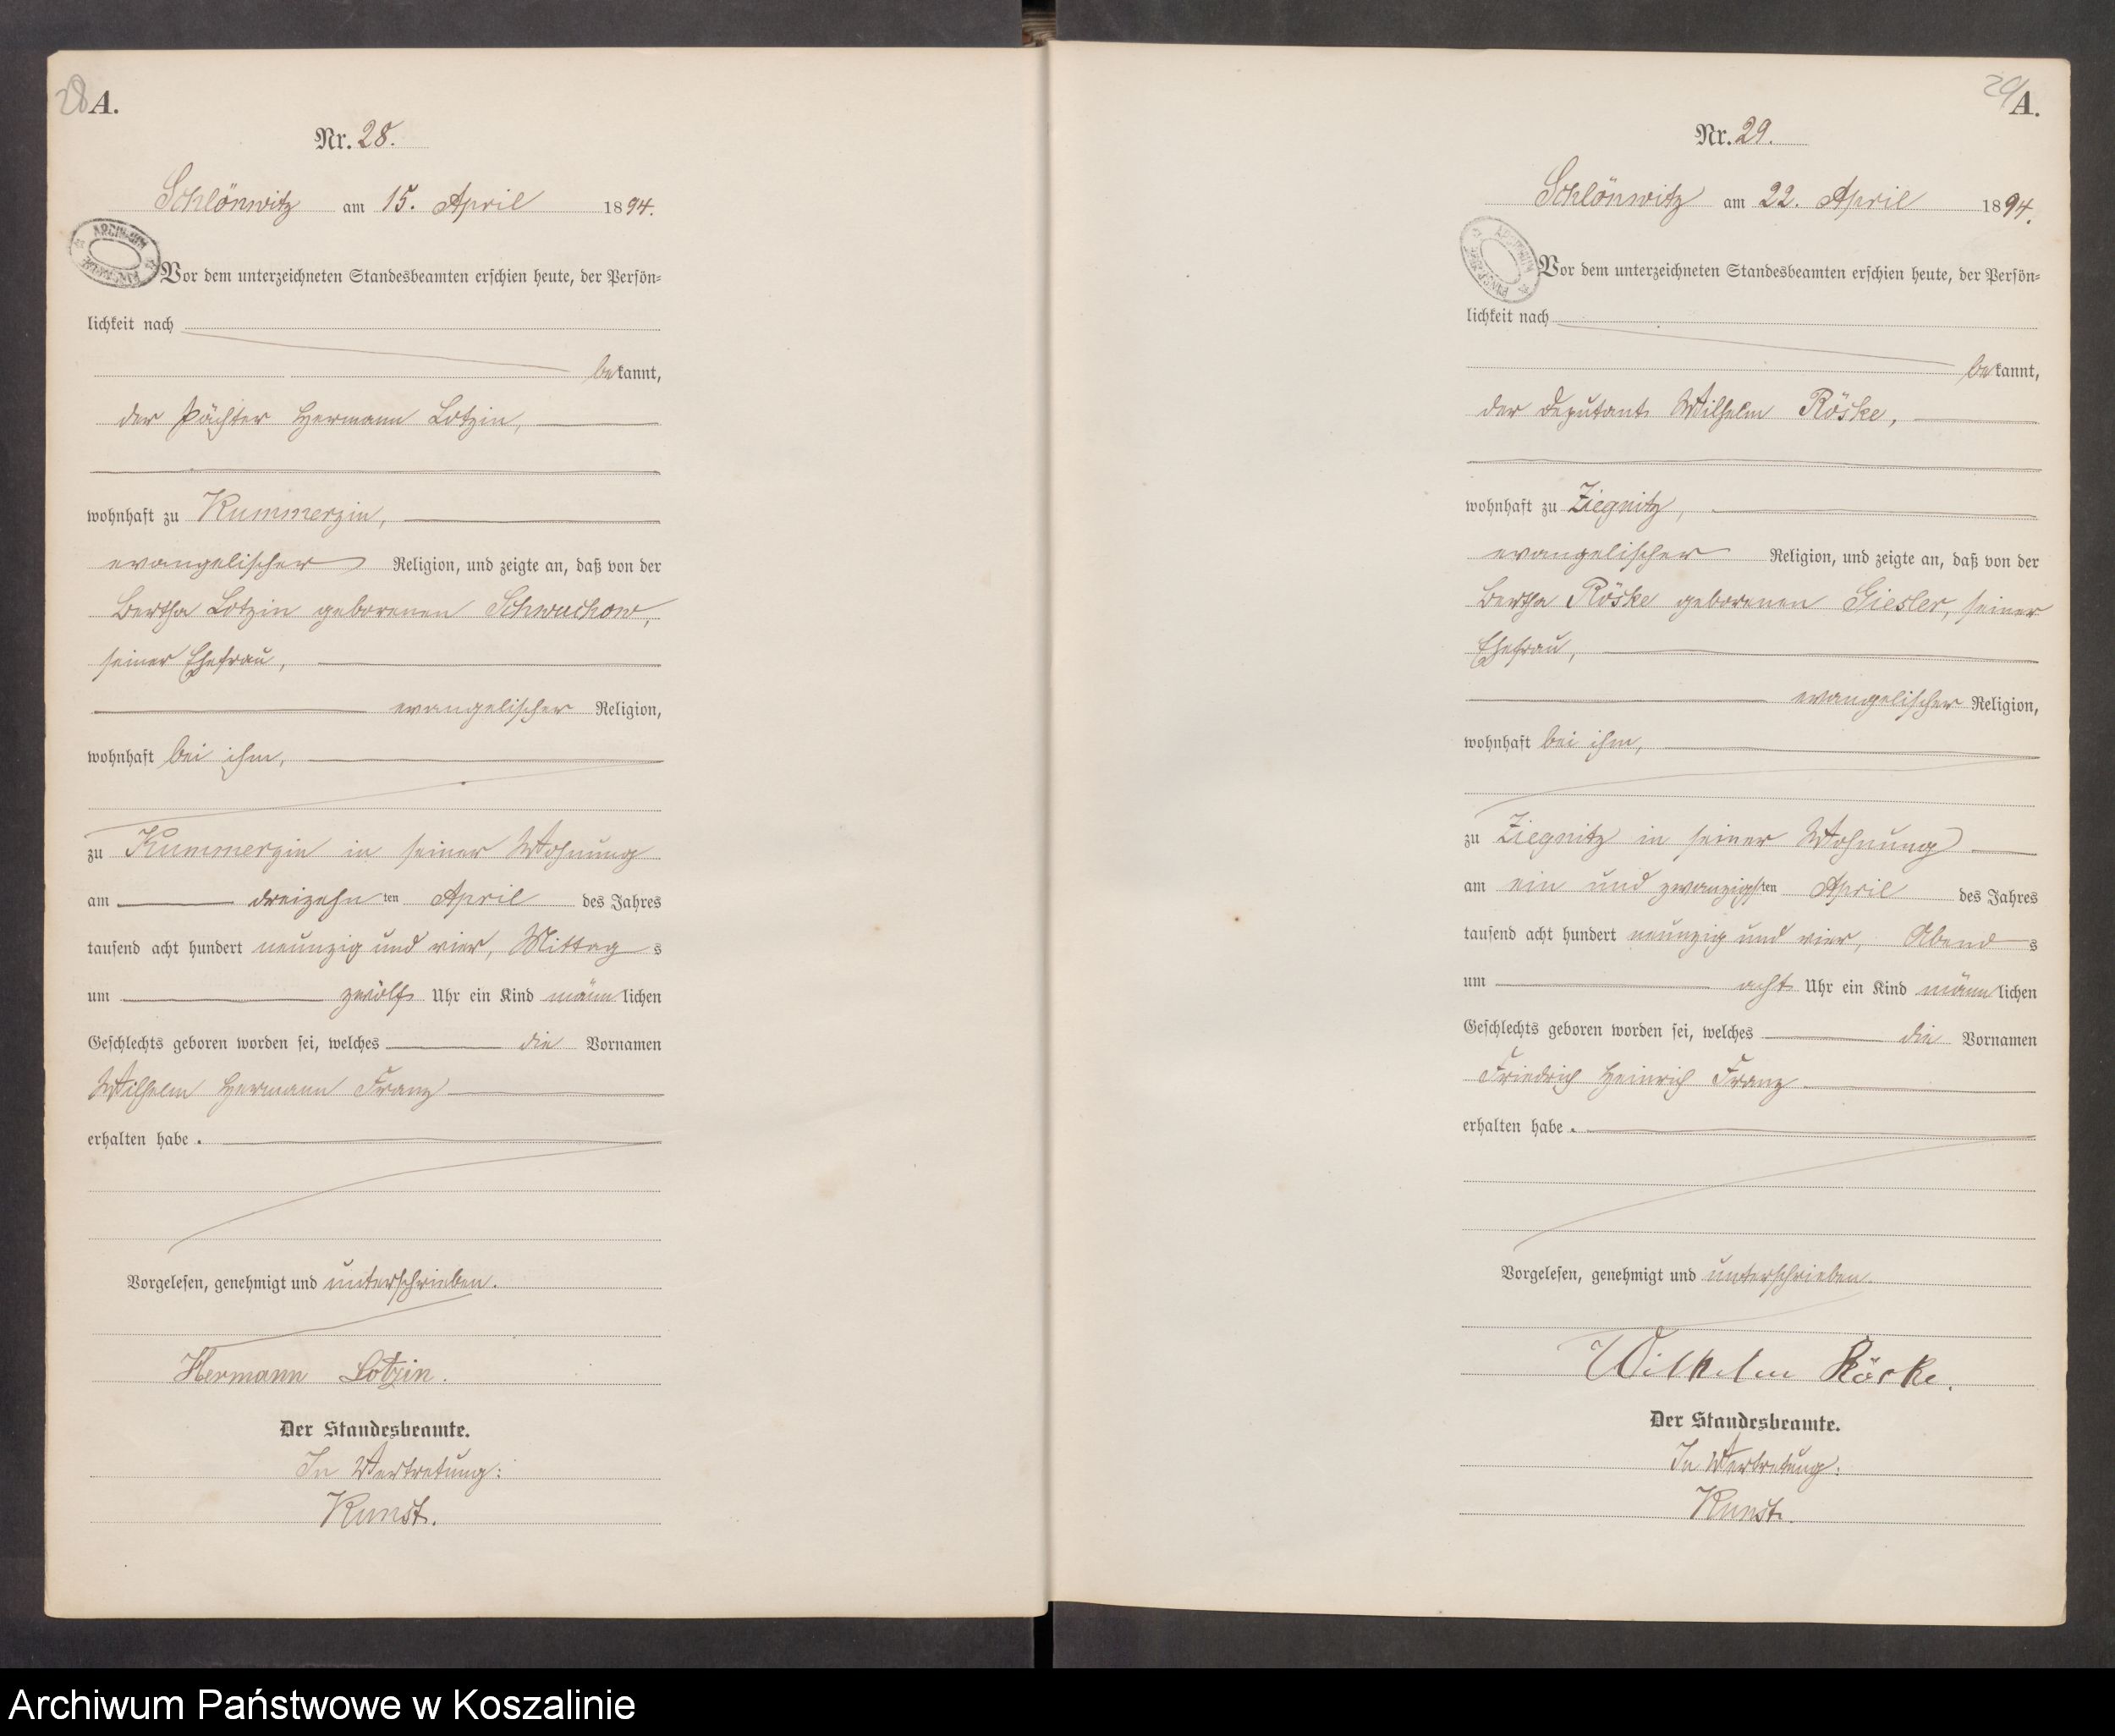 28 A.
Nr. 28.
Schlönwitz am 15. April 1894.
Vor dem unterzeichneten Standesbeamten erschien heute, der Persön-
lichkeit nach
bekannt,
der Pächter Hermann Lotzin,
wohnhaft zu Kummerzin,
evangelischer Religion, und zeigte an, daß von der
Bertha Lotzin geborenen Schwuchow,
seiner Ehefrau,
evangelischer Religion,
wohnhaft bei ihm,
zu Kummerzin in seiner Wohnung
am dreizehnten April des Jahres
tausend acht hundert neunzig und vier, Mittags
um zwölf Uhr ein Kind männlichen
Geschlechts geboren worden sei, welches die Vornamen
Wilhelm Hermann Franz
erhalten habe.
Vorgelesen, genehmigt und unterschrieben.
Hermann Lotzin.
Der Standesbeamte.
In Vertretung:
Kunst.
29 A.
Nr. 29.
Schlönwitz am 22. April 1894.
Vor dem unterzeichneten Standesbeamten erschien heute, der Persön-
lichkeit nach
bekannt,
der Deputant Wilhelm Röske,
wohnhaft zu Ziegnitz,
evangelischer Religion, und zeigte an, daß von der
Bertha Röske geborenen Giesler, seiner
Ehefrau,
evangelischer Religion,
wohnhaft bei ihm,
zu Ziegnitz in seiner Wohnung
am ein und zwanzigsten April des Jahres
tausend acht hundert neunzig und vier, Abends
um acht Uhr ein Kind männlichen
Geschlechts geboren worden sei, welches die Vornamen
Friedrich Heinrich Franz
erhalten habe.
Vorgelesen, genehmigt und unterschrieben.
Wilhelm Röske.
Der Standesbeamte.
In Vertretung:
Kunst.
Archiwum Państwowe w Koszalinie